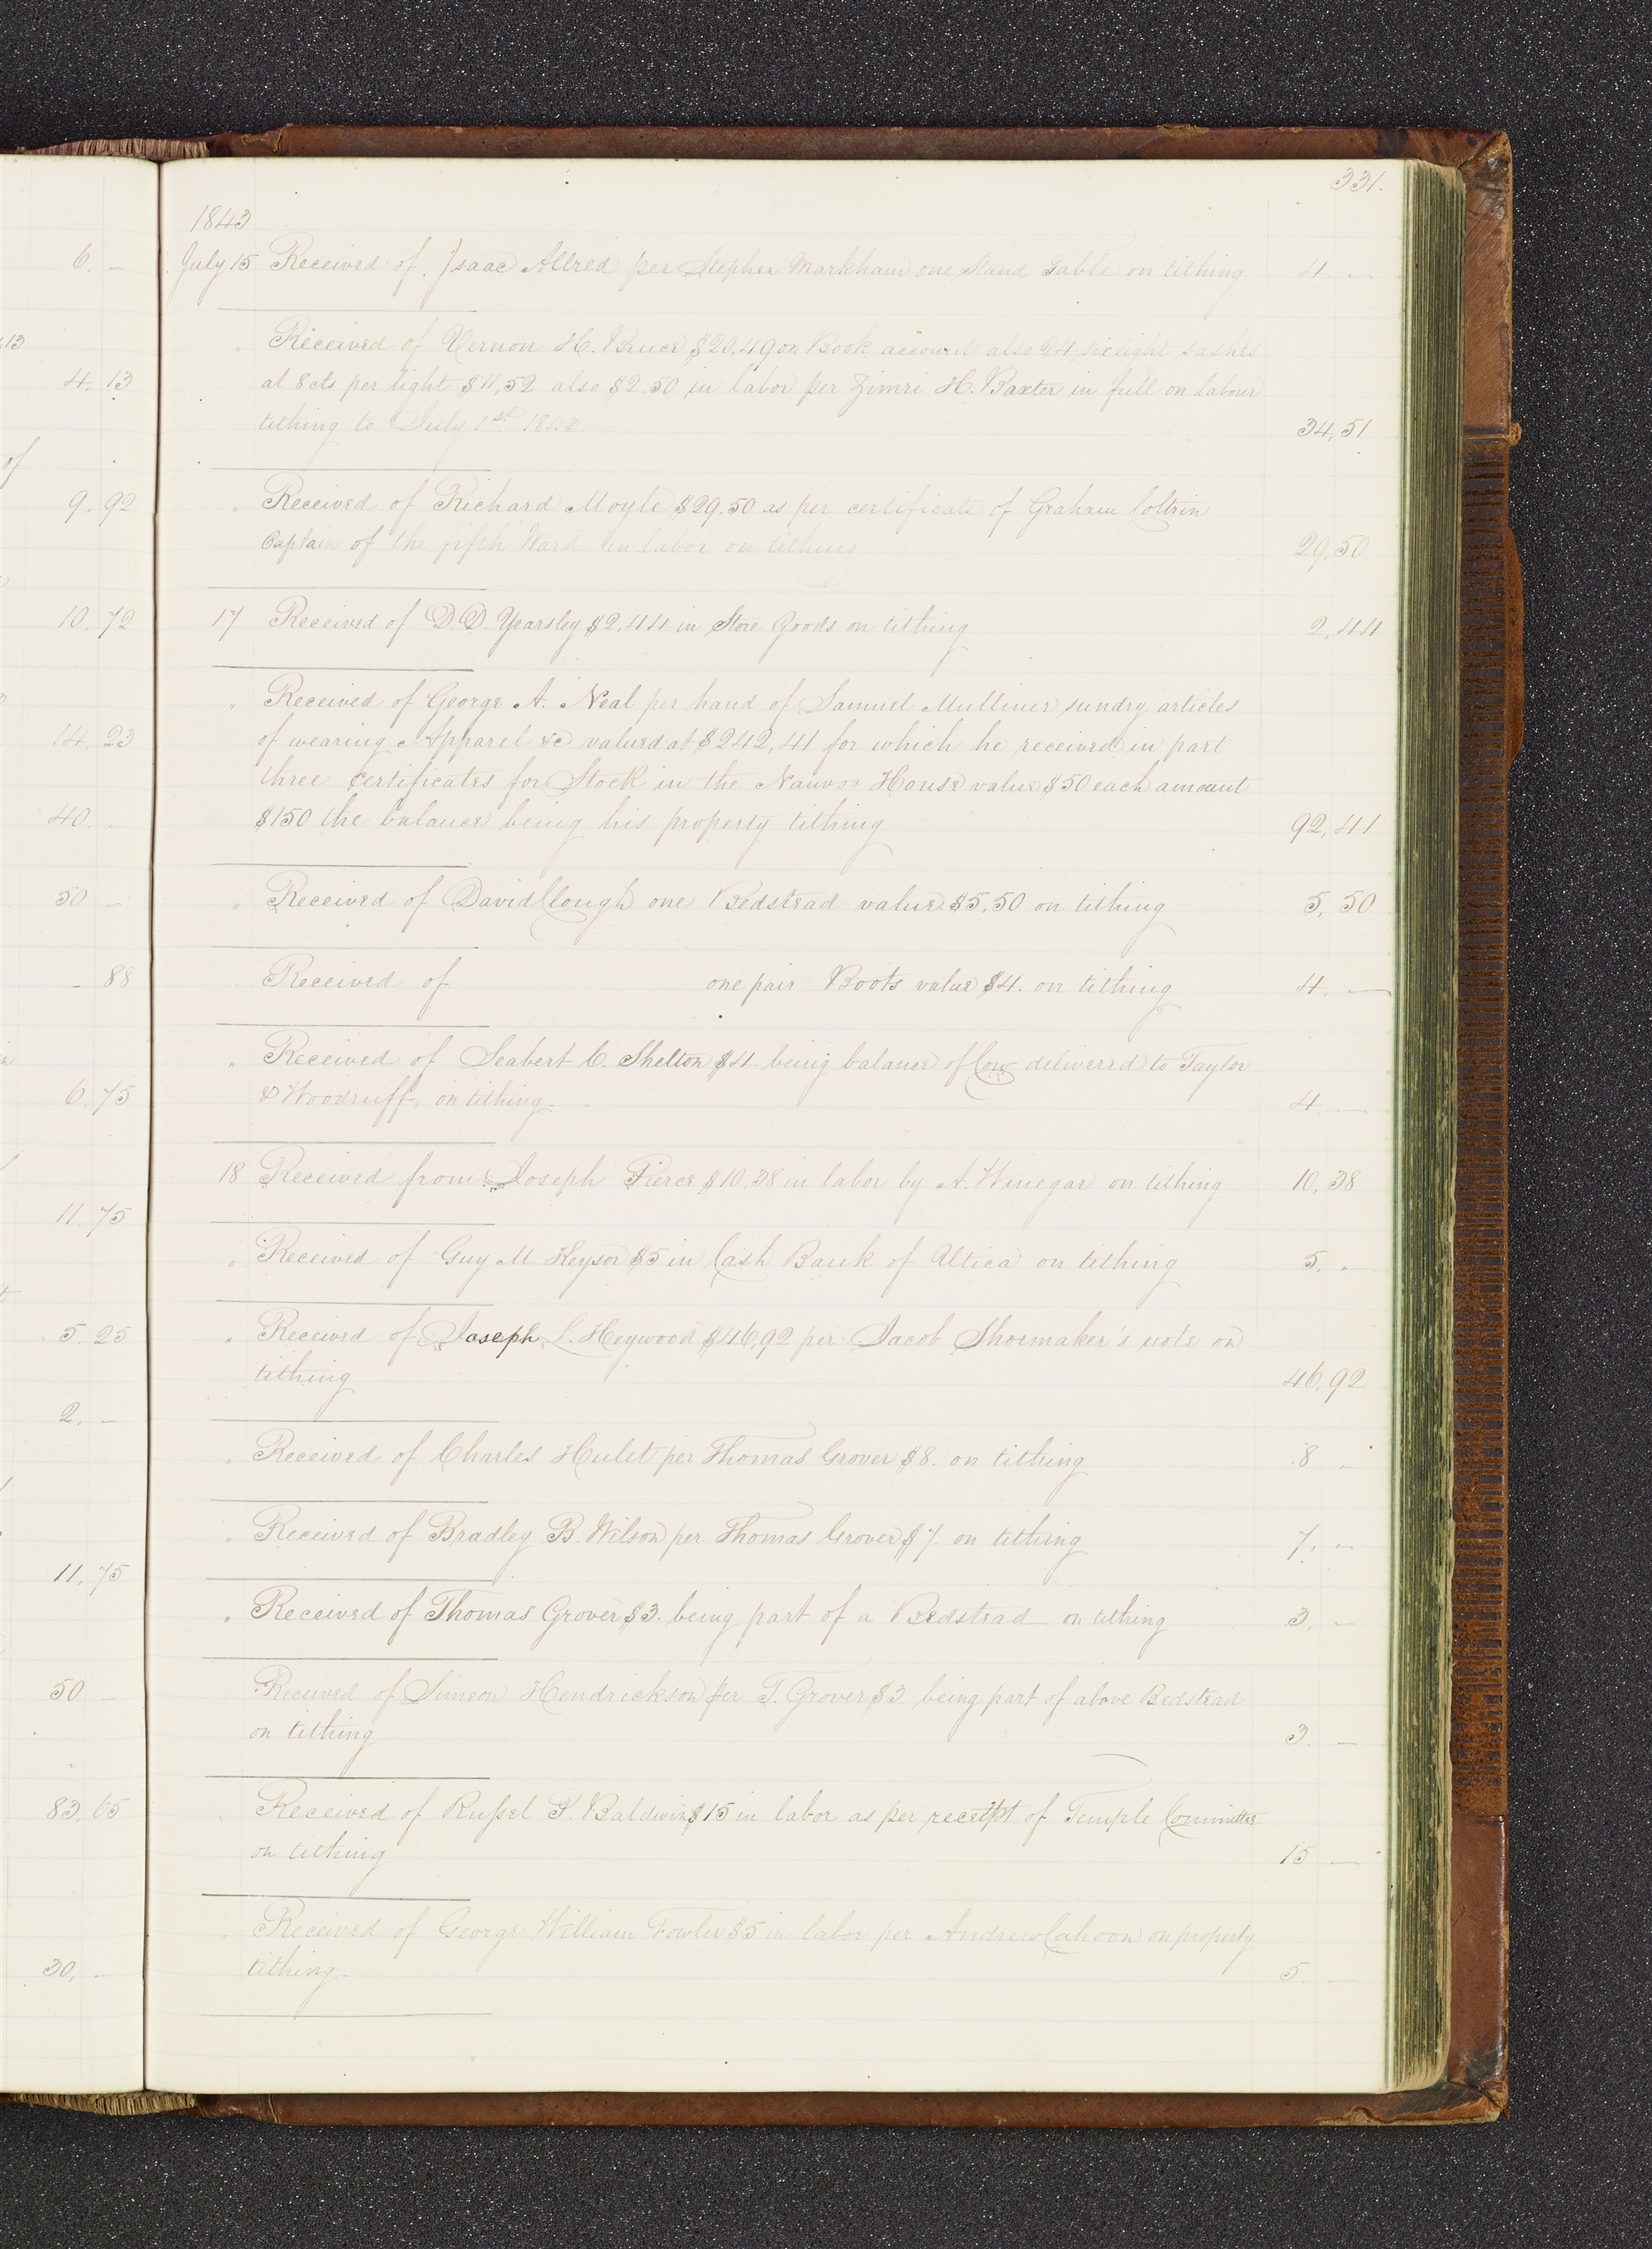 331.
1843
July 15 Received of Isaac Allred per Stephen Markham one Stand Table on tithing 4. —
" Received of Vernon H. Bruce $20,49 on Book account also 24, six light sashes
at 8 cts per light $11,52 also $2.50 in labor per Zimri H. Baxter in full on labour
tithing to July 1st 1843. 34,51
" Received of Richard Moyle $29.50 as per certificate of Graham Coltrin
Captain of the fifth Ward in labor on tithing 29,50
17 Received of D. D. Yearsley $2,44 in Store Goods on tithing 2,44
" Received of George A. Neal per hand of Samuel Mulliner sundry articles
of wearing Apparel &c valued at $242,41 for which he received in part
three certificates for Stock in the Nauvoo House value $50 each amount
$150 the balance being his property tithing 92,41
" Received of David Clough one Bedstead value $5,50 on tithing 5,50
" Received of one pair Boots value $4. on tithing 4. —
" Received of Seabert C. Shelton $4 being balance of Cow delivered to Taylor
& Woodruff, on tithing. 4. —
18 Received from Joseph Pierce $10,38 in labor by A. Winegar on tithing 10,38
" Received of Guy M. Keysor $5 in Cash Bank of Attica on tithing 5. "
" Received of Joseph L. Heywood $46,92 per Jacob Shoemaker's note on
tithing 46,92
" Received of Charles Hulet per Thomas Grover $8. on tithing 8 "
" Received of Bradley B. Wilson per Thomas Grover $7. on tithing 7. "
" Received of Thomas Grover $3. being part of a Bedstead on tithing 3. —
Received of Simeon Hendrickson per T. Grover $3. being part of above Bedstead
on tithing 3. —
" Received of Russel K. Baldwin $15 in labor as per receipt of Temple Committee
on tithing 15 —
" Received of George William Fowler $5 in labor per Andrew Cahoon on property
tithing. 5. —
6. —
13
4,13
of
9,92
10,72
14,23
40. —
50 —
— 88
6,75
11,75
5.25
2. —
11,75
50 —
83,65
30, —